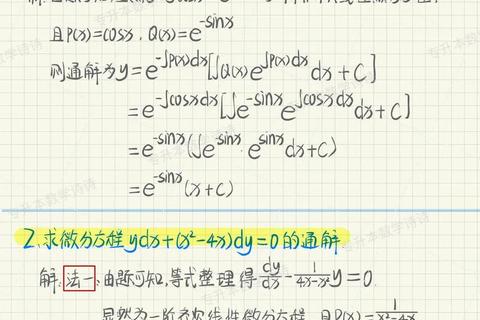 且P(x)=cosx, Q(x)=e^{-sinx}
则通解为y=e^{-∫P(x)dx}[∫Q(x)e^{∫P(x)dx}dx+C]
=e^{-∫cosxdx}[∫e^{-sinx}e^{∫cosxdx}dx+C]
=e^{-sinx}(∫e^{-sinx}·e^{sinx}dx+C)
=e^{-sinx}(x+C)
2.求微分方程ydx+(x²-4x)dy=0的通解
解:法一:由题可知,等式整理得dy/dx-1/(4x-x²)y=0
显然为一阶齐次线性微分方程,且P(x)=1/(x²-4x)
专升本数学诗诗